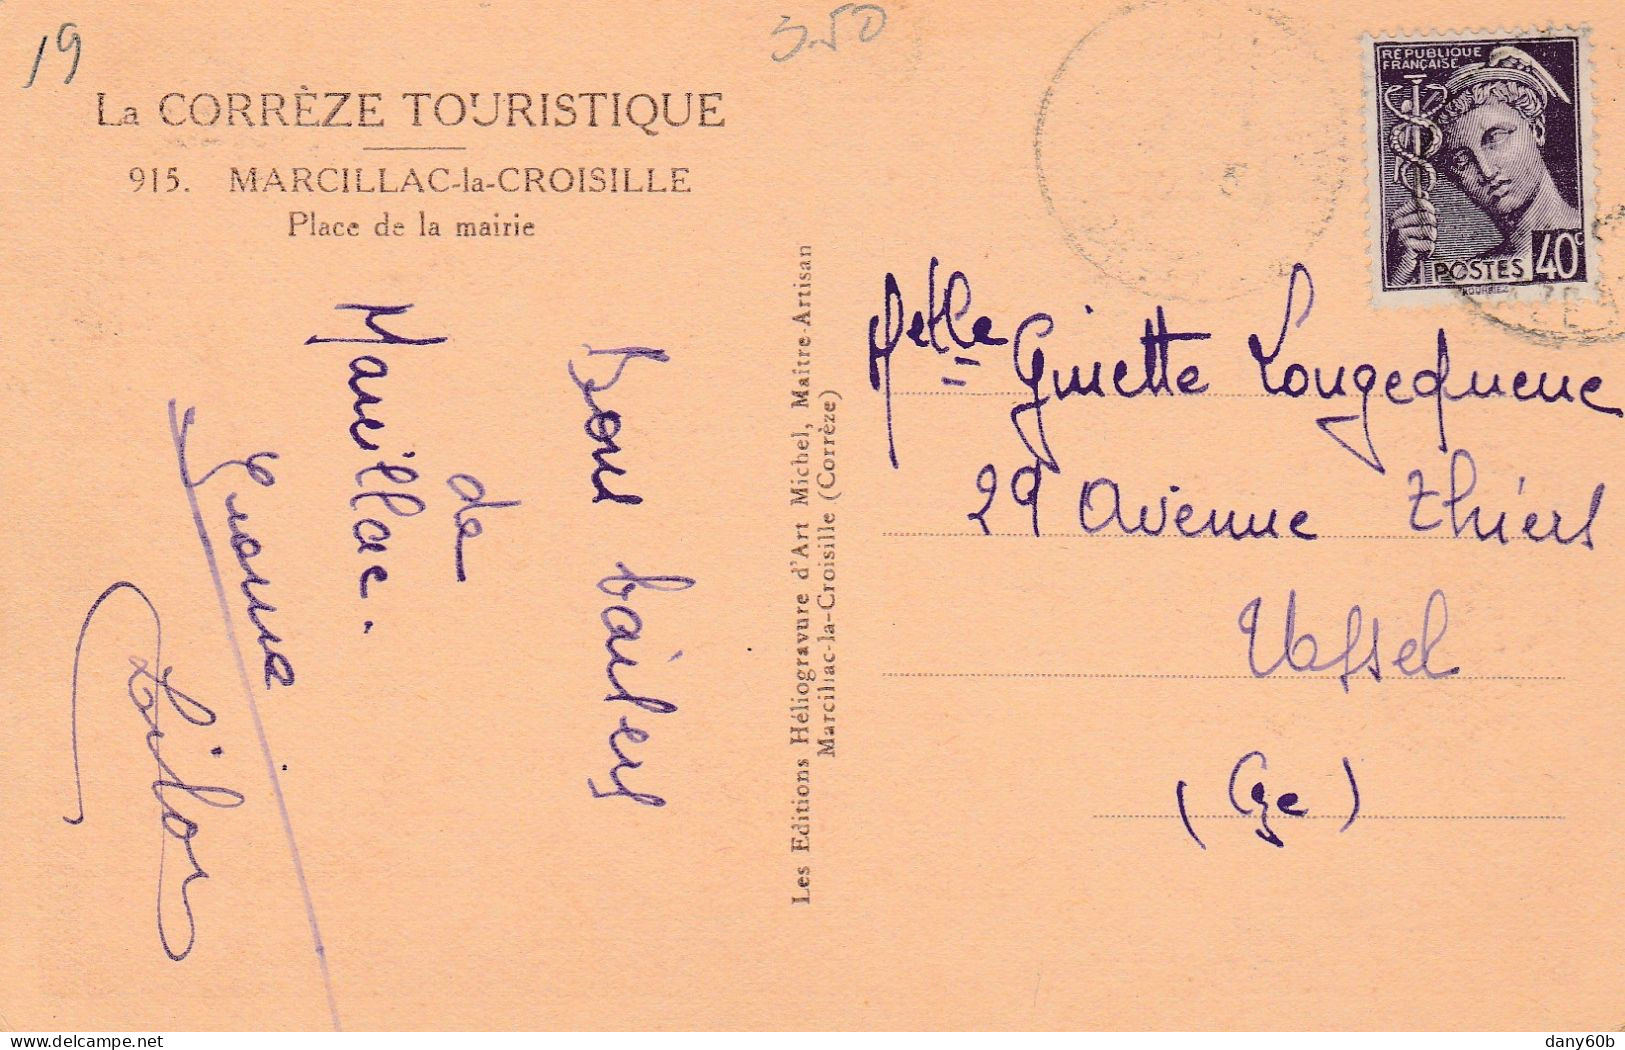 19
3.50
La CORRÈZE TOURISTIQUE
915. MARCILLAC-la-CROISILLE
Place de la mairie
Bons baisers
de
Marcillac.
Les Editions Héliogravure d'Art Michel, Maître-Artisan
Marcillac-la-Croisille (Corrèze)
RÉPUBLIQUE
FRANÇAISE
POSTES 40c
Melle Ginette Longequeue
29 Avenue Thiers
Ussel
(Cze)
delcampe.net
dany60b